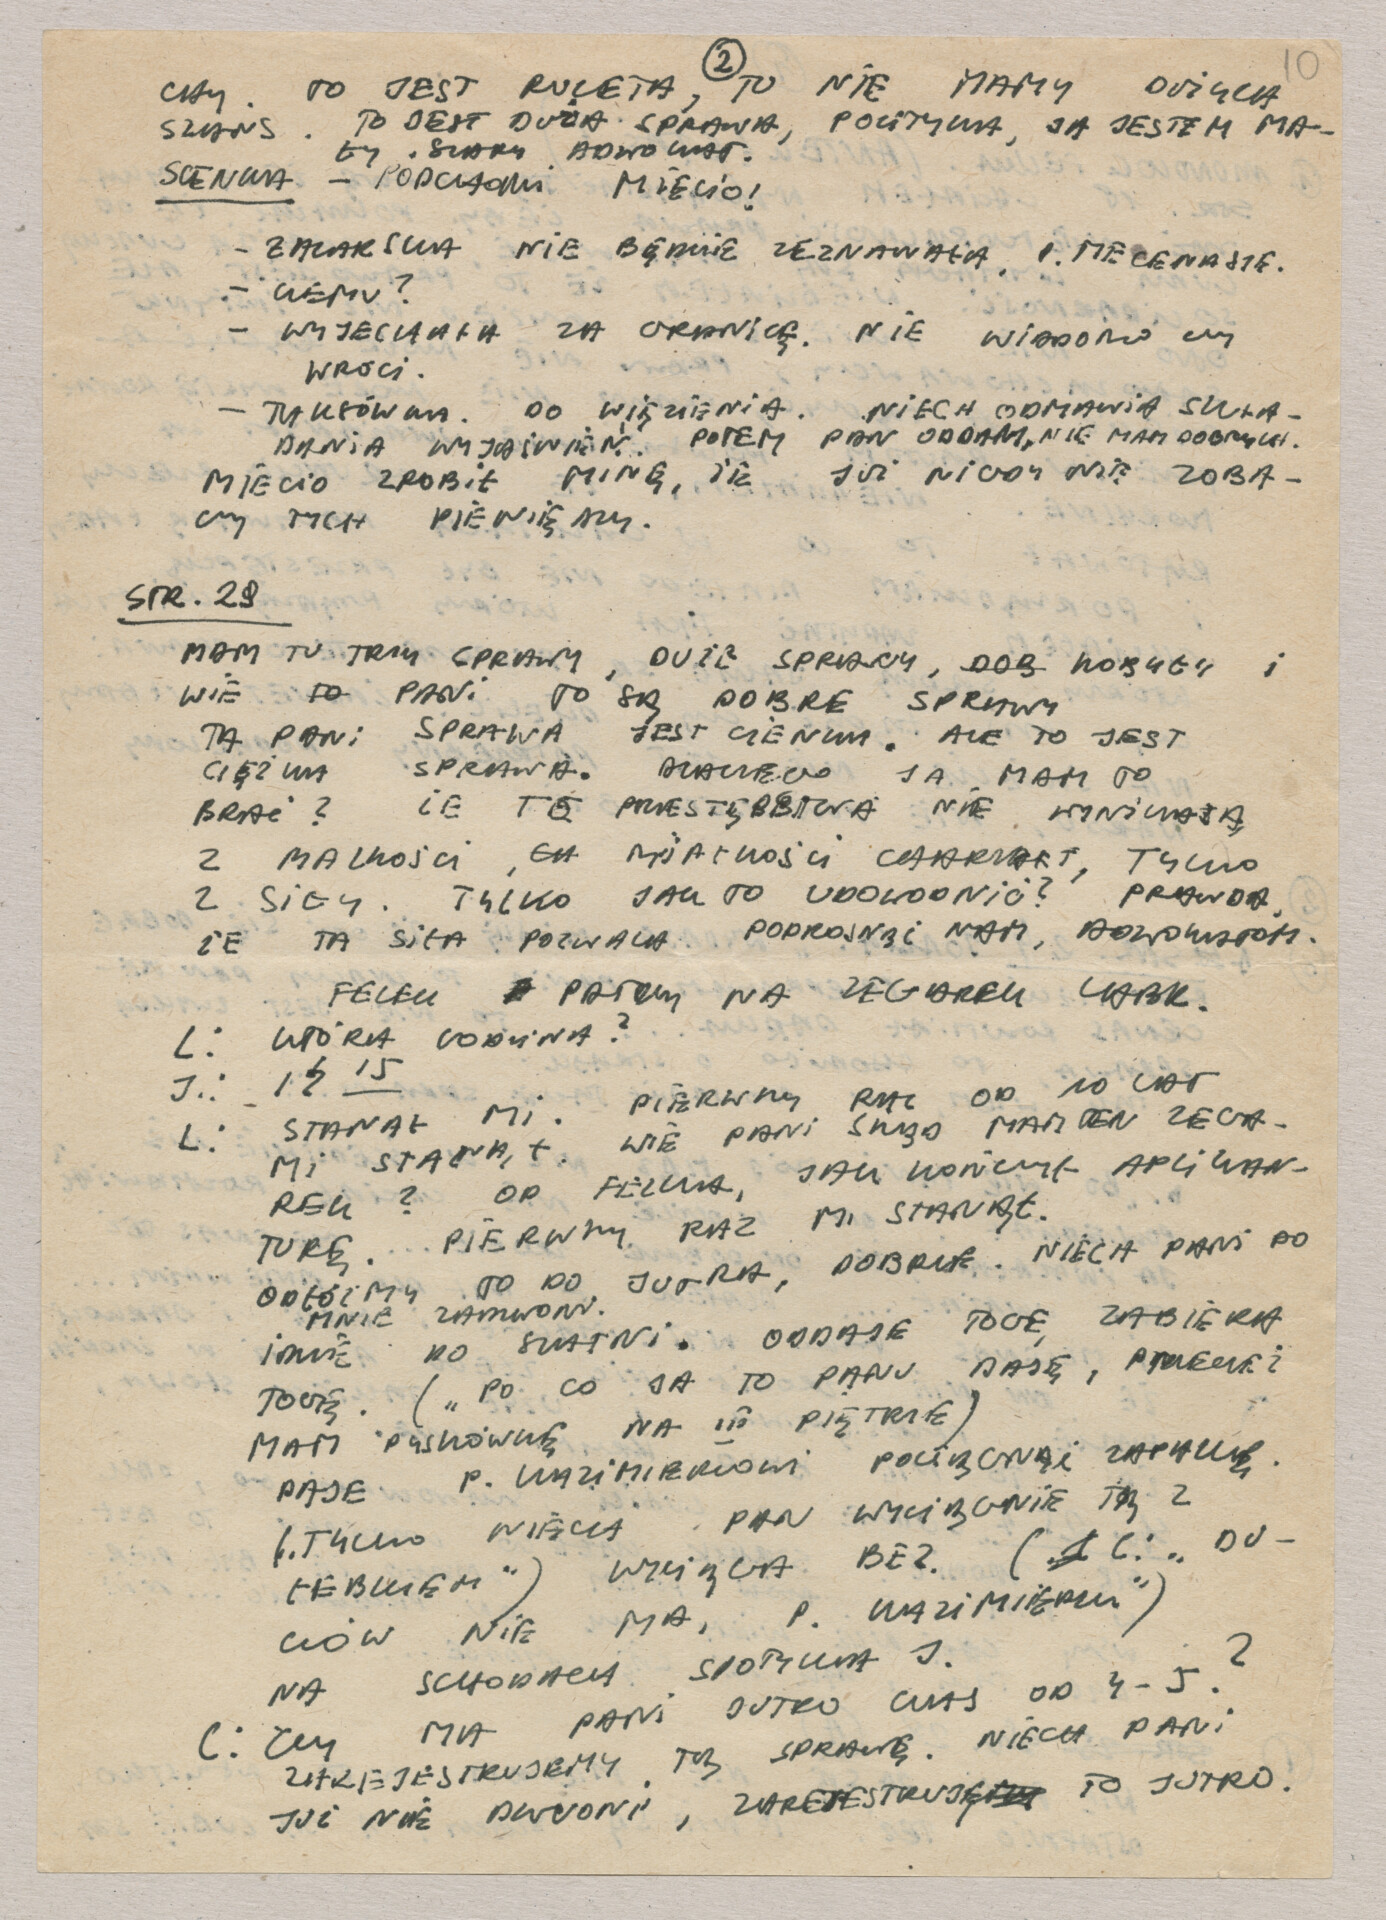 ②
10
CHY. TO JEST RULETA, TU NIE MAMY DUŻYCH
SZANS. TO JEST DUŻA SPRAWA, POLITYKA, JA JESTEM MA-
ŁY, SZARY ADWOKAT.
SCENKA – PODCHODZI MIECIO!
– ZALARSKA NIE BĘDZIE ZEZNAWAŁA, P. MECENASIE.
– CZEMU?
– WYJECHAŁA ZA GRANICĘ. NIE WIADOMO CZY
WRÓCI.
– TAKSÓWKA. DO WIĘZIENIA. NIECH ODMAWIA SKŁA-
DANIA WYJAŚNIEŃ. POTEM PAN ODDAM, NIE MAM DROBNYCH.
MIECIO ZROBIŁ MINĘ, ŻE JUŻ NIGDY NIE ZOBA-
CZY TYCH PIENIĘDZY.
STR. 29
MAM TU TRZY SPRAWY, DUŻE SPRAWY, DOB KOBYŁY I
WIE TO PANI TO SĄ DOBRE SPRAWY
TA PANI SPRAWA JEST CIENKA. ALE TO JEST
CIĘŻKA SPRAWA. DLACZEGO JA MAM TO
BRAĆ? ŻE TE PRZESTĘPSTWA NIE WYNIKAJĄ
Z MAŁOŚCI, MIAŁKOŚCI CHARAKT, TYLKO
Z SIŁY. TYLKO JAK TO UDOWODNIĆ? PRAWDA,
ŻE TA SIŁA POZWALA PODROSNĄĆ NAM, ADWOKATOM.
FELEK PATRZY NA ZEGAREK LABR.
L: KTÓRA GODZINA?
J.: 12 15
L: STANĄŁ MI. PIERWSZY RAZ OD 10 LAT
MI STANĄŁ. WIE PANI SKĄD MAM TEN ZEGA-
REK? OD FELKA, JAK KOŃCZYŁ APLIKAN-
TURĘ. PIERWSZY RAZ MI STANĄŁ.
ODŁÓŻMY TO DO JUTRA, DOBRZE. NIECH PANI DO
MNIE ZADZWONI.
IDZIE DO SZATNI. ODDAJE TOGĘ, ZABIERA
TOGĘ. („PO CO JA TO PANU DAJĘ, PRZECIEŻ
MAM PYSKÓWKĘ NA III PIĘTRZE)
DAJE P. KAZIMIERZOWI POCIĄGNĄĆ ZAPAŁKĘ.
(„TYLKO NIECH PAN WYCIĄGNIE TĄ Z
ŁEBKIEM") WYCIĄGA BEZ. (L: „DU-
CHÓW NIE MA, P. KAZIMIERZU")
NA SCHODACH SPOTYKA J.
L: CZY MA PANI JUTRO CZAS OD 4 – 5.?
ZAREJESTRUJEMY TĄ SPRAWĘ. NIECH PANI
JUŻ NIE DZWONI, ZAREJESTRUJĘ TO JUTRO.